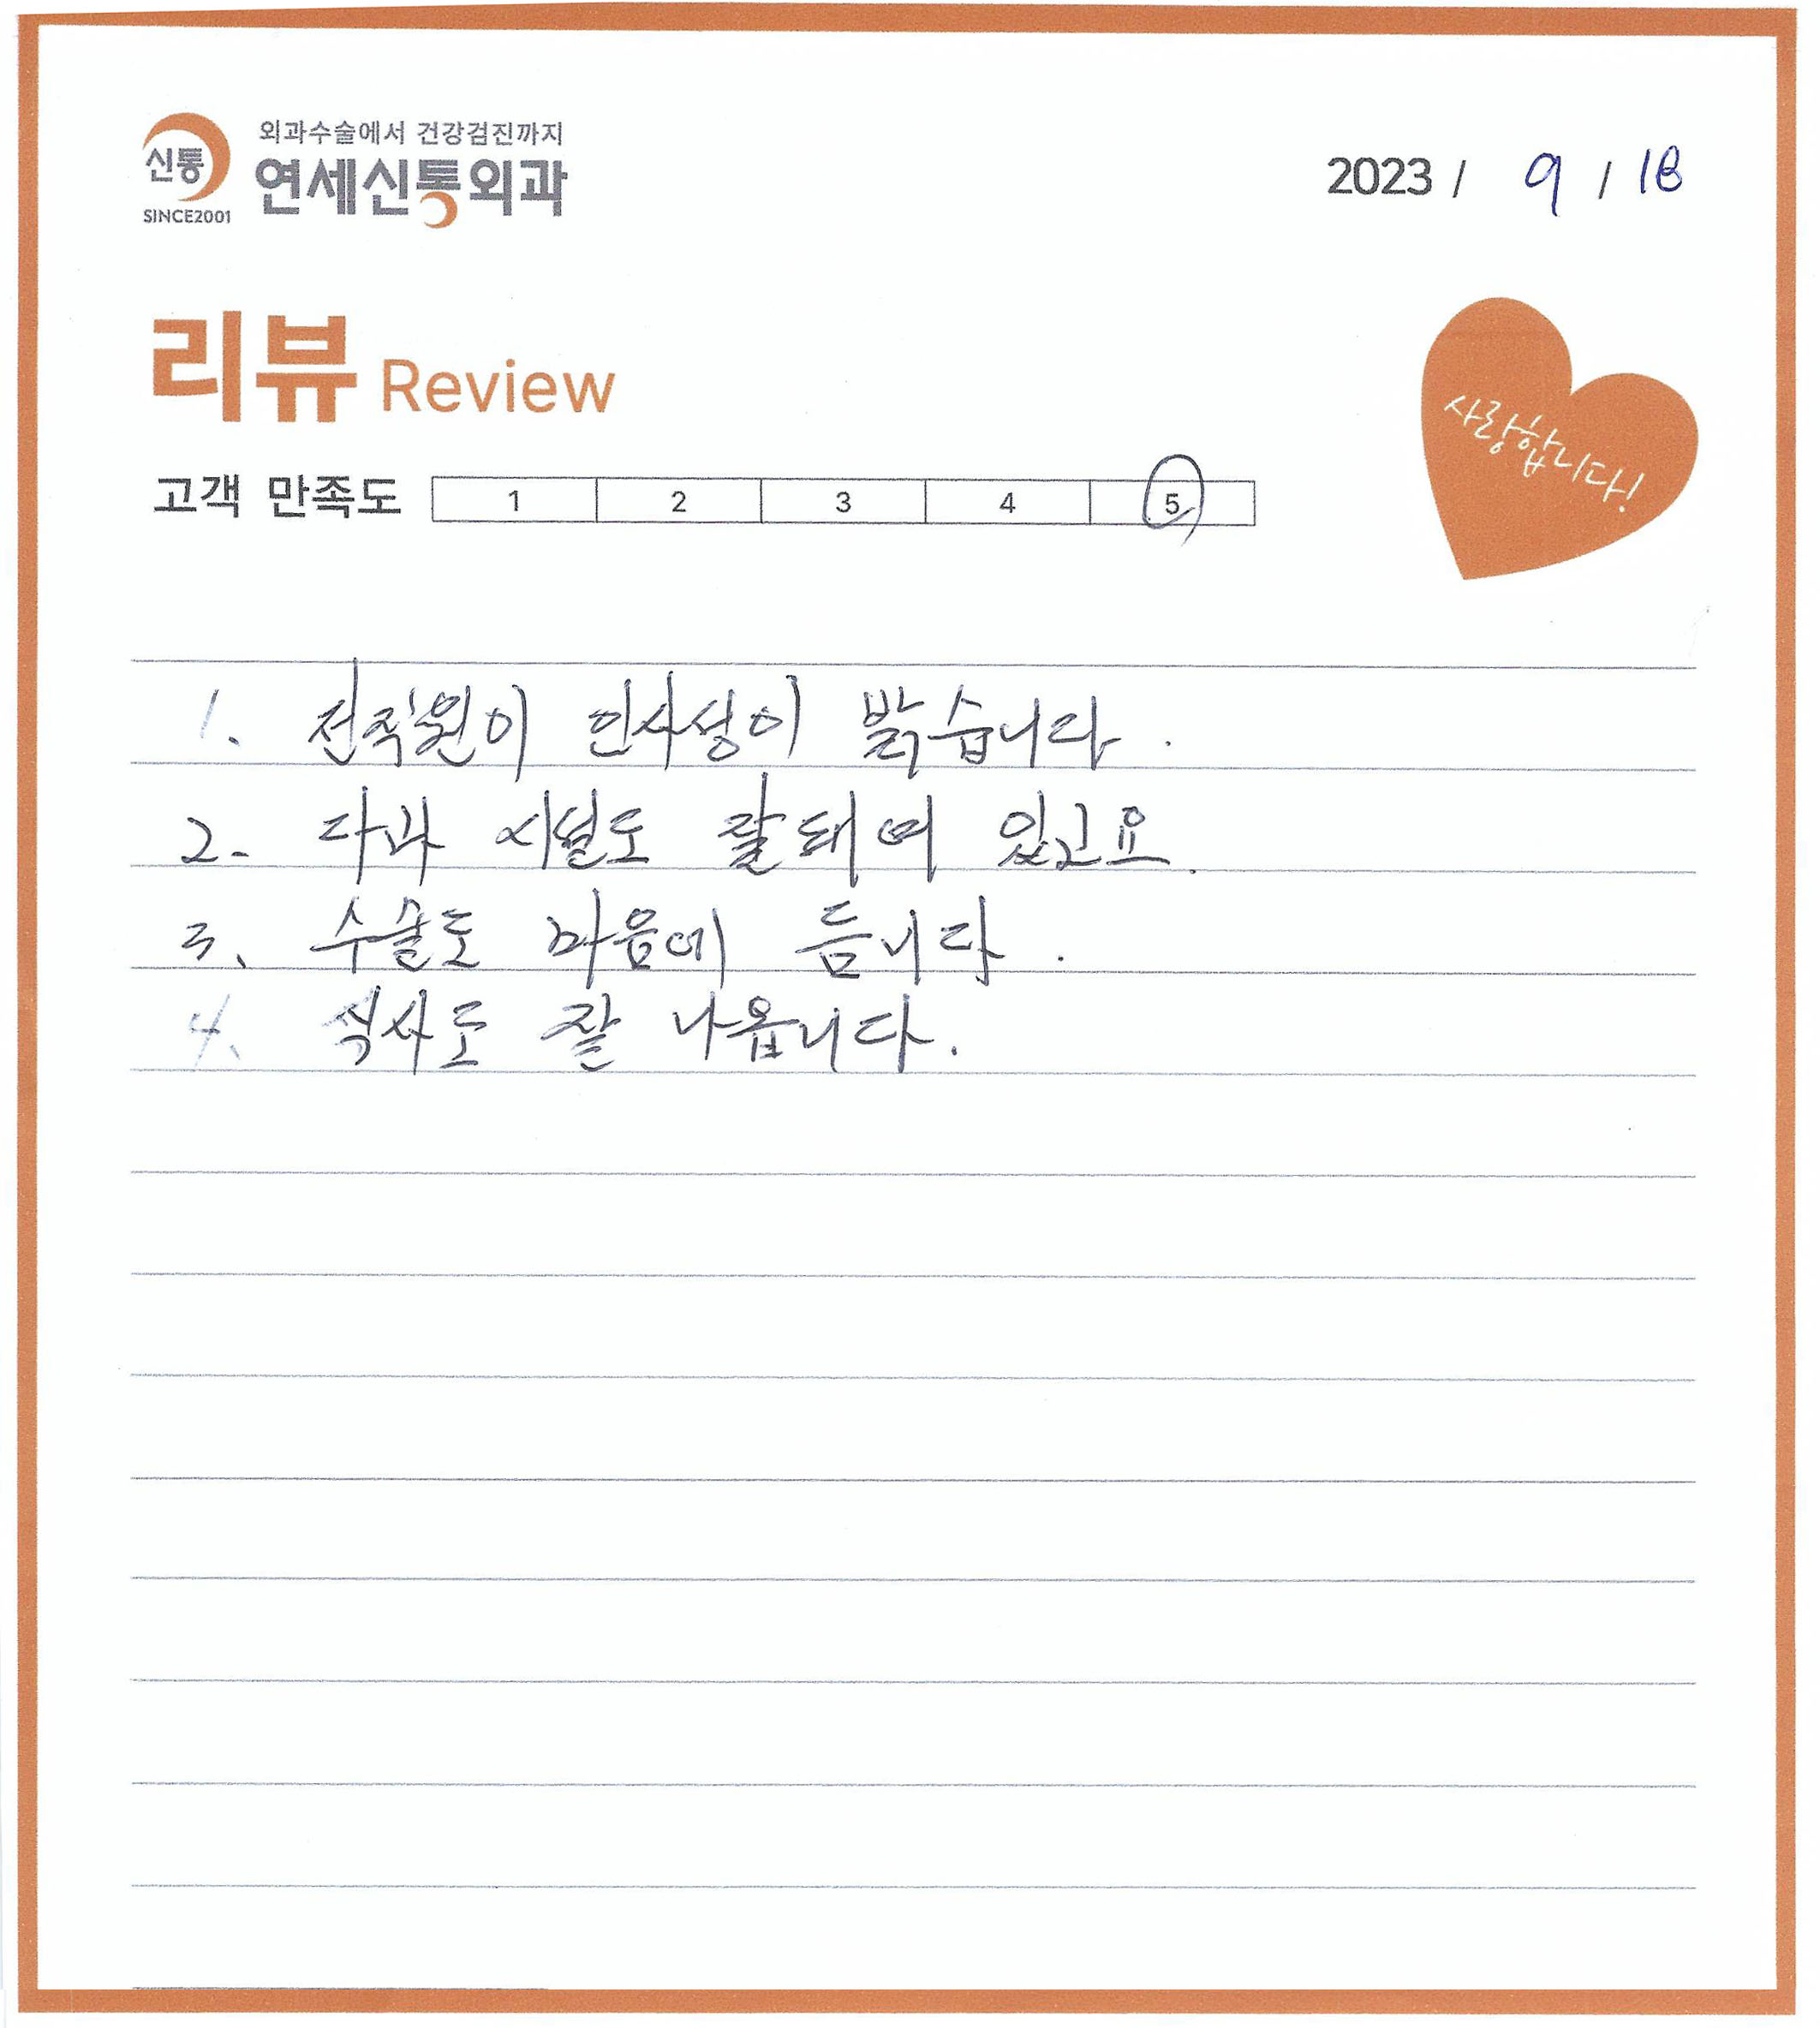 신통
SINCE2001
외과수술에서 건강검진까지
연세신통외과
2023 / 9 / 18
리뷰 Review
사랑합니다!
고객 만족도 1 2 3 4 5
1. 전직원이 인사성이 밝습니다.
2. 다과 시설도 잘돼여 있고요.
3. 수술도 마음에 듭니다.
4. 식사도 잘 나옵니다.